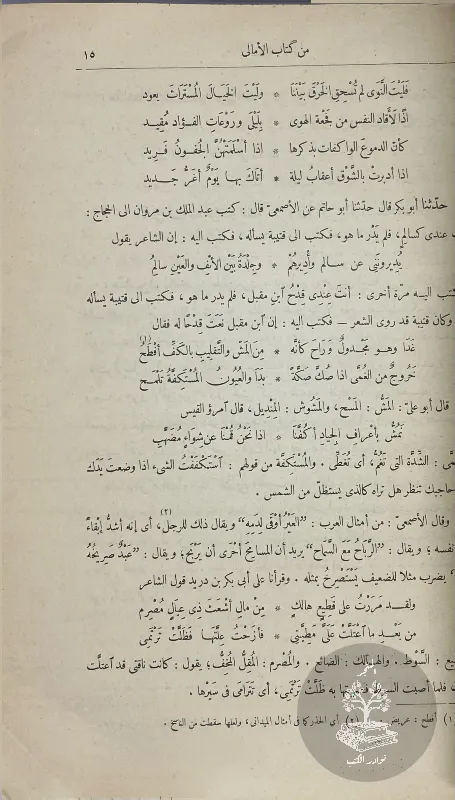 من كتاب الأمالى ١٥
فَلَيْتَ النَّوَى لم تُسْحِقِ الخَرْقَ بَيْنَنَا * ولَيْتَ الخَيالَ المُسْتَراثَ يعود
إذًا لَأَقاد النفس من فَجْعة الهوى * بِلَيْلَى ورَوْعاتِ الفؤاد مُقِيد
كأنّ الدموعَ الواكفات بذكرها * اذا أسْلَمَتْهُنَّ الجفونُ فَرِيد
اذا أدبرتْ بالشَّوْق أعقابُ ليلة * أتاك بها يَوْمٌ أغَرُّ جَديد
حدّثنا أبو بكر قال حدّثنا أبو حاتم عن الأصمعىّ قال : كتب عبد الملك بن مروان الى الحجاج :
عندى كسالمٍ، فلم يَدْرِ ما هو، فكتب الى قتيبة يسأله، فكتب اليه : إن الشاعر يقول
يُدِيرونَنِى عن سالمٍ وأُدِيرُهُمْ * وجِلْدَةُ بَيْنَ الأنْفِ والعَيْنِ سالِمُ
كتب اليه مرّة أخرى : أنت عِنْدِى قِدْحُ ابنِ مقبل، فلم يدر ما هو، فكتب الى قتيبة يسأله
وكان قتيبة قد روى الشعر ــ فكتب اليه : إن ابن مقبل نَعَتَ قِدْحًا له فقال
غَدَا وهو مَجْدولٌ وَرَاحَ كأنَّه * مِنَ المَشِّ والتَّقْلِيب بالكَفِّ أَفْطَحُ
خَرُوجٌ من الغُمَّى اذا صُكَّ صَكَّةً * بَدَا والعُيونُ المُسْتَكِفَّةُ تَلْمَحُ
قال أبو علىّ : المَشُّ : المَسْح، والمَشُوش : المِنْديل، قال امرؤ القيس
نَمُشُّ بأعْراف الجِيادِ أكُفَّنَا * اذا نَحْنُ قُمْنَا عن شِواءٍ مُضَهَّبِ
الشِّدَّة التى تَغُمُّ، أى تُغَطِّى . والمُسْتَكِفَّة من قولهم : اسْتَكْفَفْتُ الشىء اذا وضعتَ يَدَك
حاجبك تنظر هل تراه كالذى يستظلّ من الشمس .
وقال الأصمعىّ : من أمثال العرب : ”العَيْرُ أوْقَى لِدَمِهِ“ ويقال ذلك للرجل(٢)، أى إنه أشدُّ إبْقاءً
نفسه ؛ ويقال : ”الرَّبَاحُ مَعَ السَّمَاحِ“ يريد أن المسامِحَ أحْرَى أن يَرْبَح؛ ويقال : ”عَبْدٌ صَرِيخُهُ
يضرب مثلا للضعيف يَسْتَصْرِخُ بمثله . وقرأنا على أبى بكر بن دريد قول الشاعر
ولقد مَرَرْتُ على قَطِيعٍ هالكٍ * مِنْ مالِ أشْعَثَ ذى عِيالٍ مُصْرِم
من بَعْدِ ما اعْتَلَّتْ عَلَىَّ مَطِيَّتِى * فأزَحْتُ عِلَّتَها فَظَلَّتْ تَرْتَمِى
: السَّوْط . والهالك : الضائع . والمُصْرِم : المُقِلُّ المُخِفُّ؛ يقول : كانت ناقتى قد اعتلّت
، فلما أصبت السوط به ظَلَّتْ تَرْتَمِى، أى تَتَرامَى فى سَيْرِها .
(١) أفطح : عريض . (٢) أى الحَذِر كما فى أمثال الميدانى، ولعلها سقطت من الناسخ .
نوادر الكتب